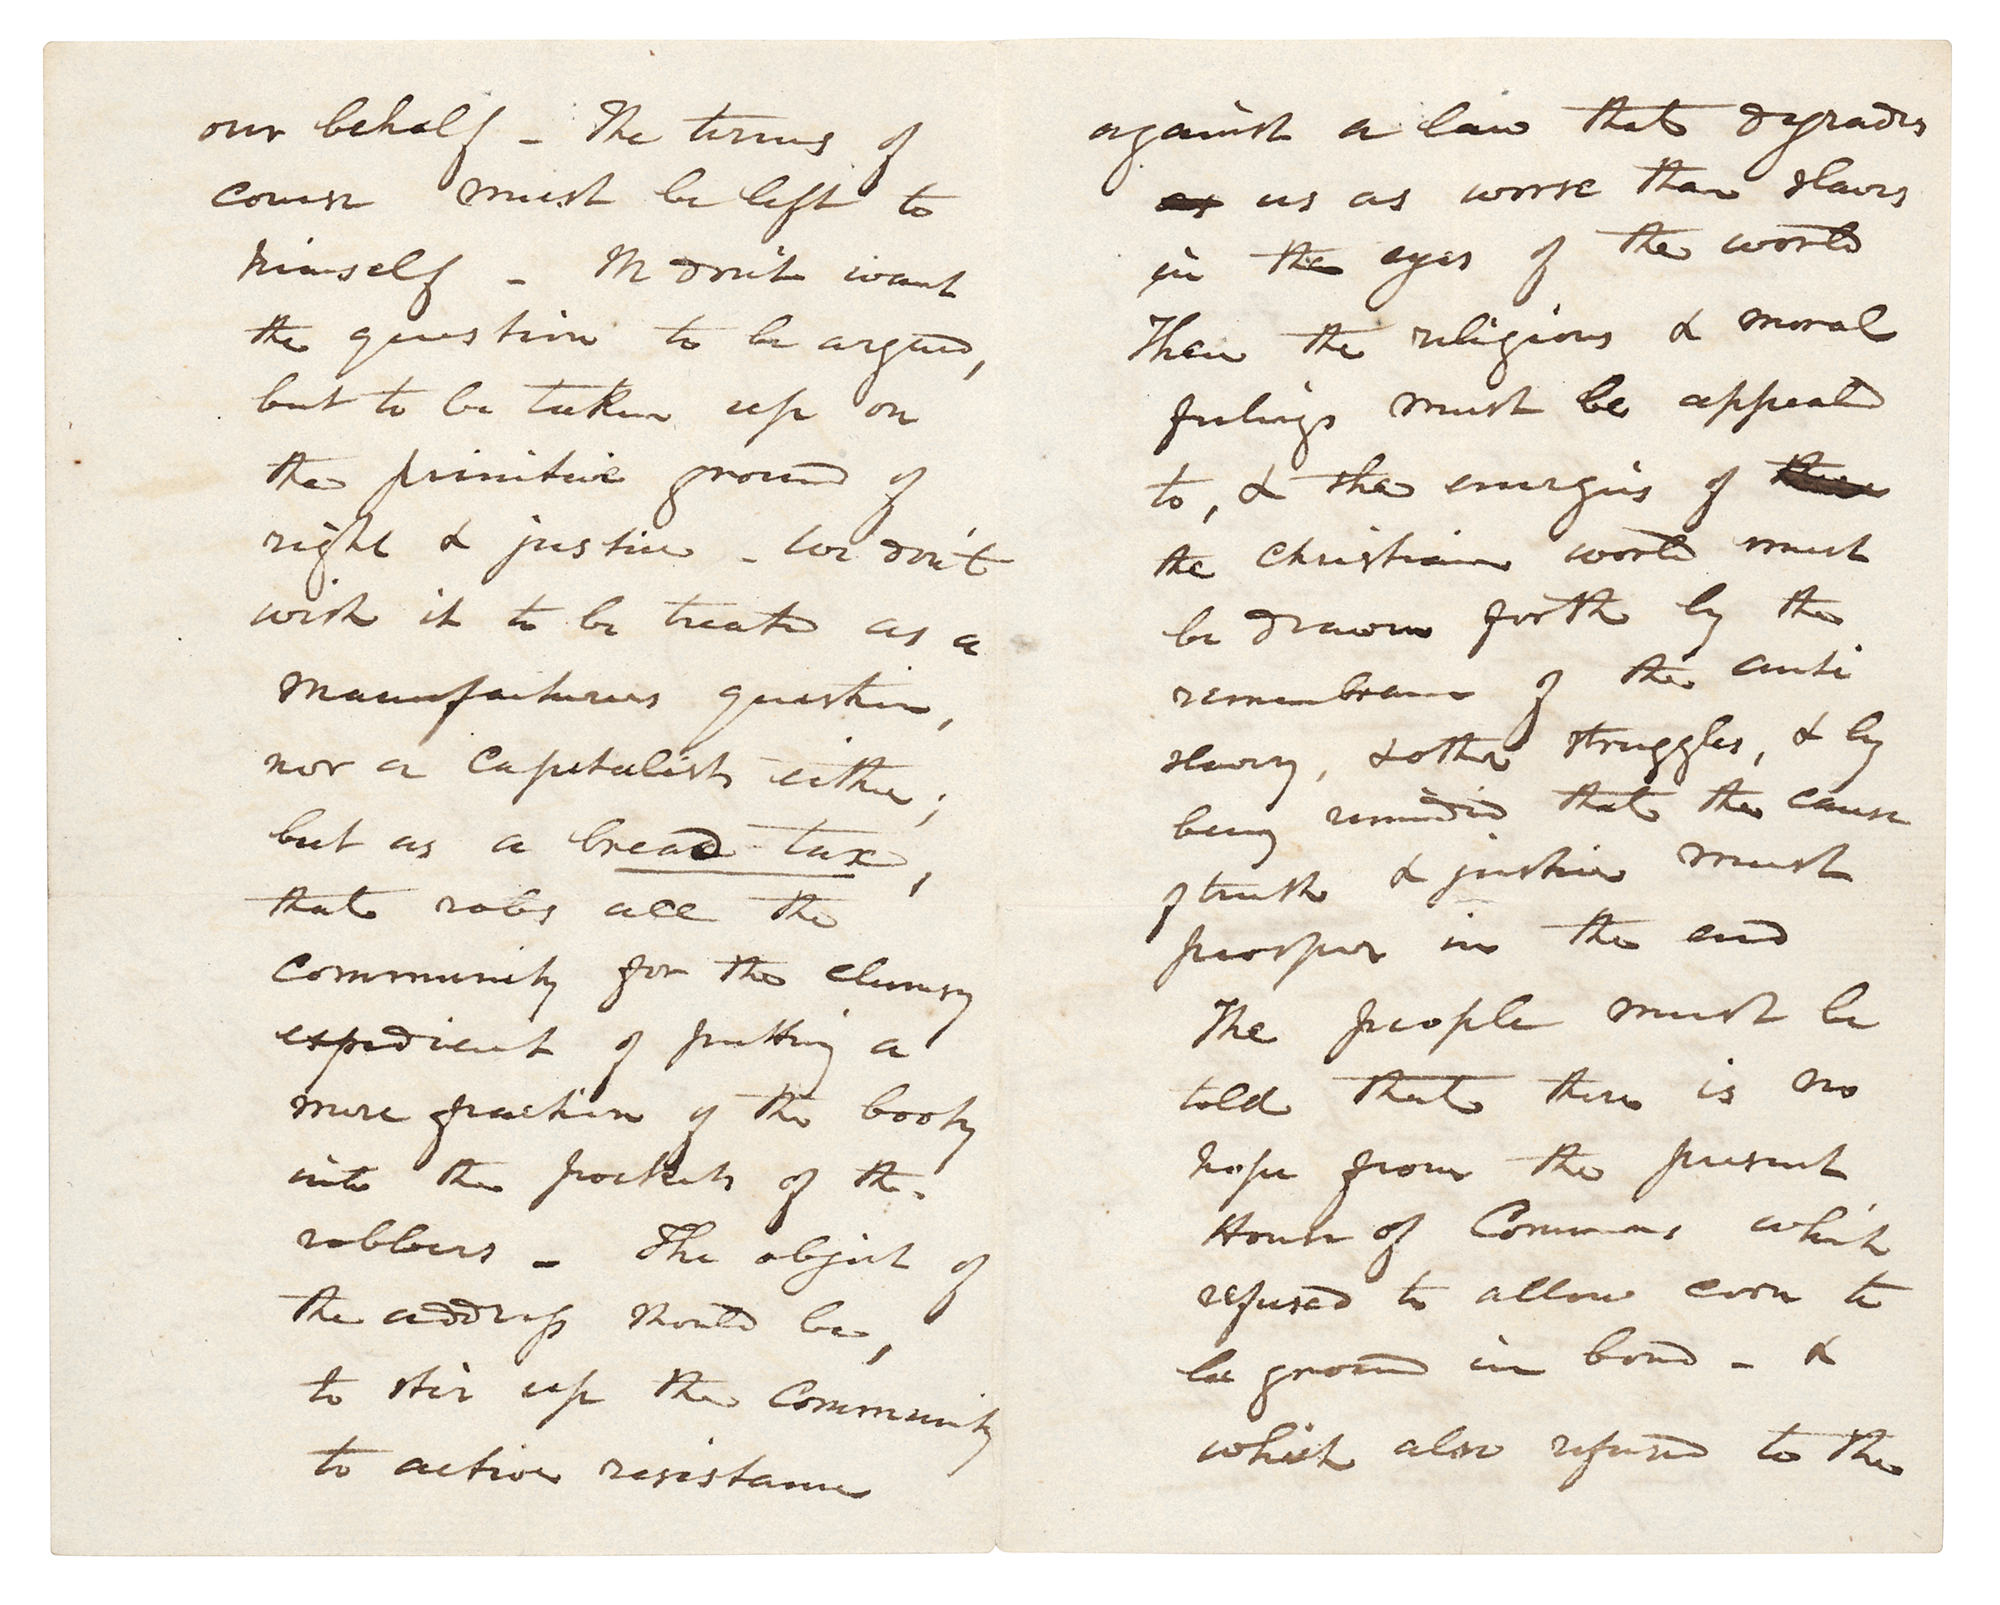 our behalf – The terms of
course must be left to
himself – We don't want
the question to be argued,
but to be taken up on
the primitive ground of
right & justice – We don't
wish it to be treated as a
manufacturers question,
nor a capitalists either;
but as a bread-tax,
that robs all the
community for the clumsy
expedient of putting a
mere fraction of the booty
into the pockets of the
robbers – The object of
the address should be,
to stir up the community
to active resistance
against a law that degrades
as us as worse than slaves
in the eyes of the world
Then the religious & moral
feelings must be appealed
to, & the energies of
the Christian world must
be drawn forth by the
remembrance of the anti
slavery, & other struggles, & by
being reminded that the cause
of truth & justice must
prosper in the end
The people must be
told that there is no
hope from the present
House of Commons which
refused to allow corn to
be ground in bond – &
which also refused to the